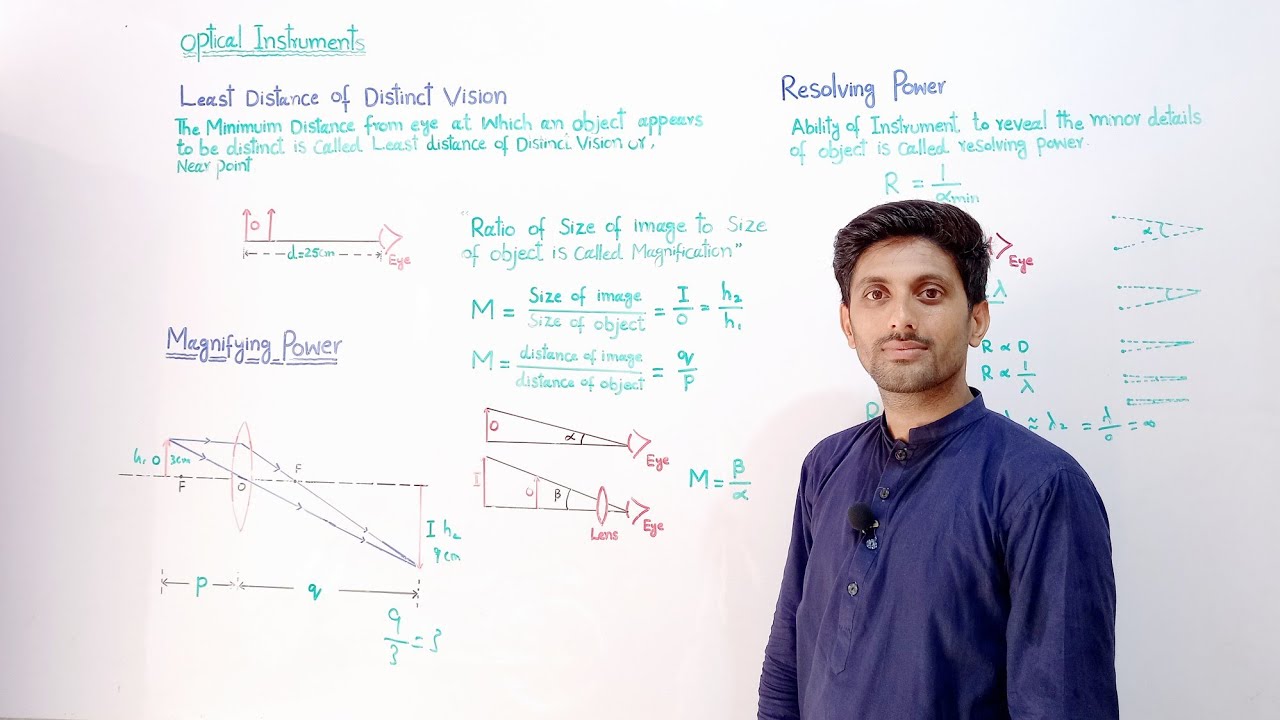 Optical Instruments
Least Distance of Distinct Vision
The Minimuim Distance from eye at which an object appears
to be distinct is called Least distance of Disinci Vision or,
Near point
O
d=25cm
Eye
"Ratio of Size of image to Size
of object is Called Magnification"
M = Size of image / Size of object = I/O = h₂/h₁
M = distance of image / distance of object = q/p
Magnifying Power
h₁ O 3cm
F
O
F
I h₂
9cm
p
q
9/3 = 3
O
α
Eye
I
O
β
Lens
Eye
M = β/α
Resolving Power
Ability of Instrument to reveal the minor details
of object is Called resolving power.
R = 1/αmin
Eye
λ
R ∝ D
R ∝ 1/λ
R
≈ λ₂ = λ/0 = ∞
α